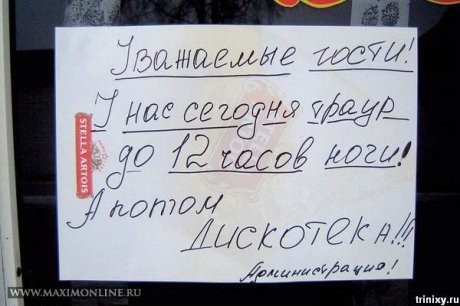 Уважаемые гости!
У нас сегодня траур
до 12 часов ночи!
А потом
Дискотека!!!
Администрация!
STELLA ARTOIS
WWW.MAXIMONLINE.RU
trinixy.ru